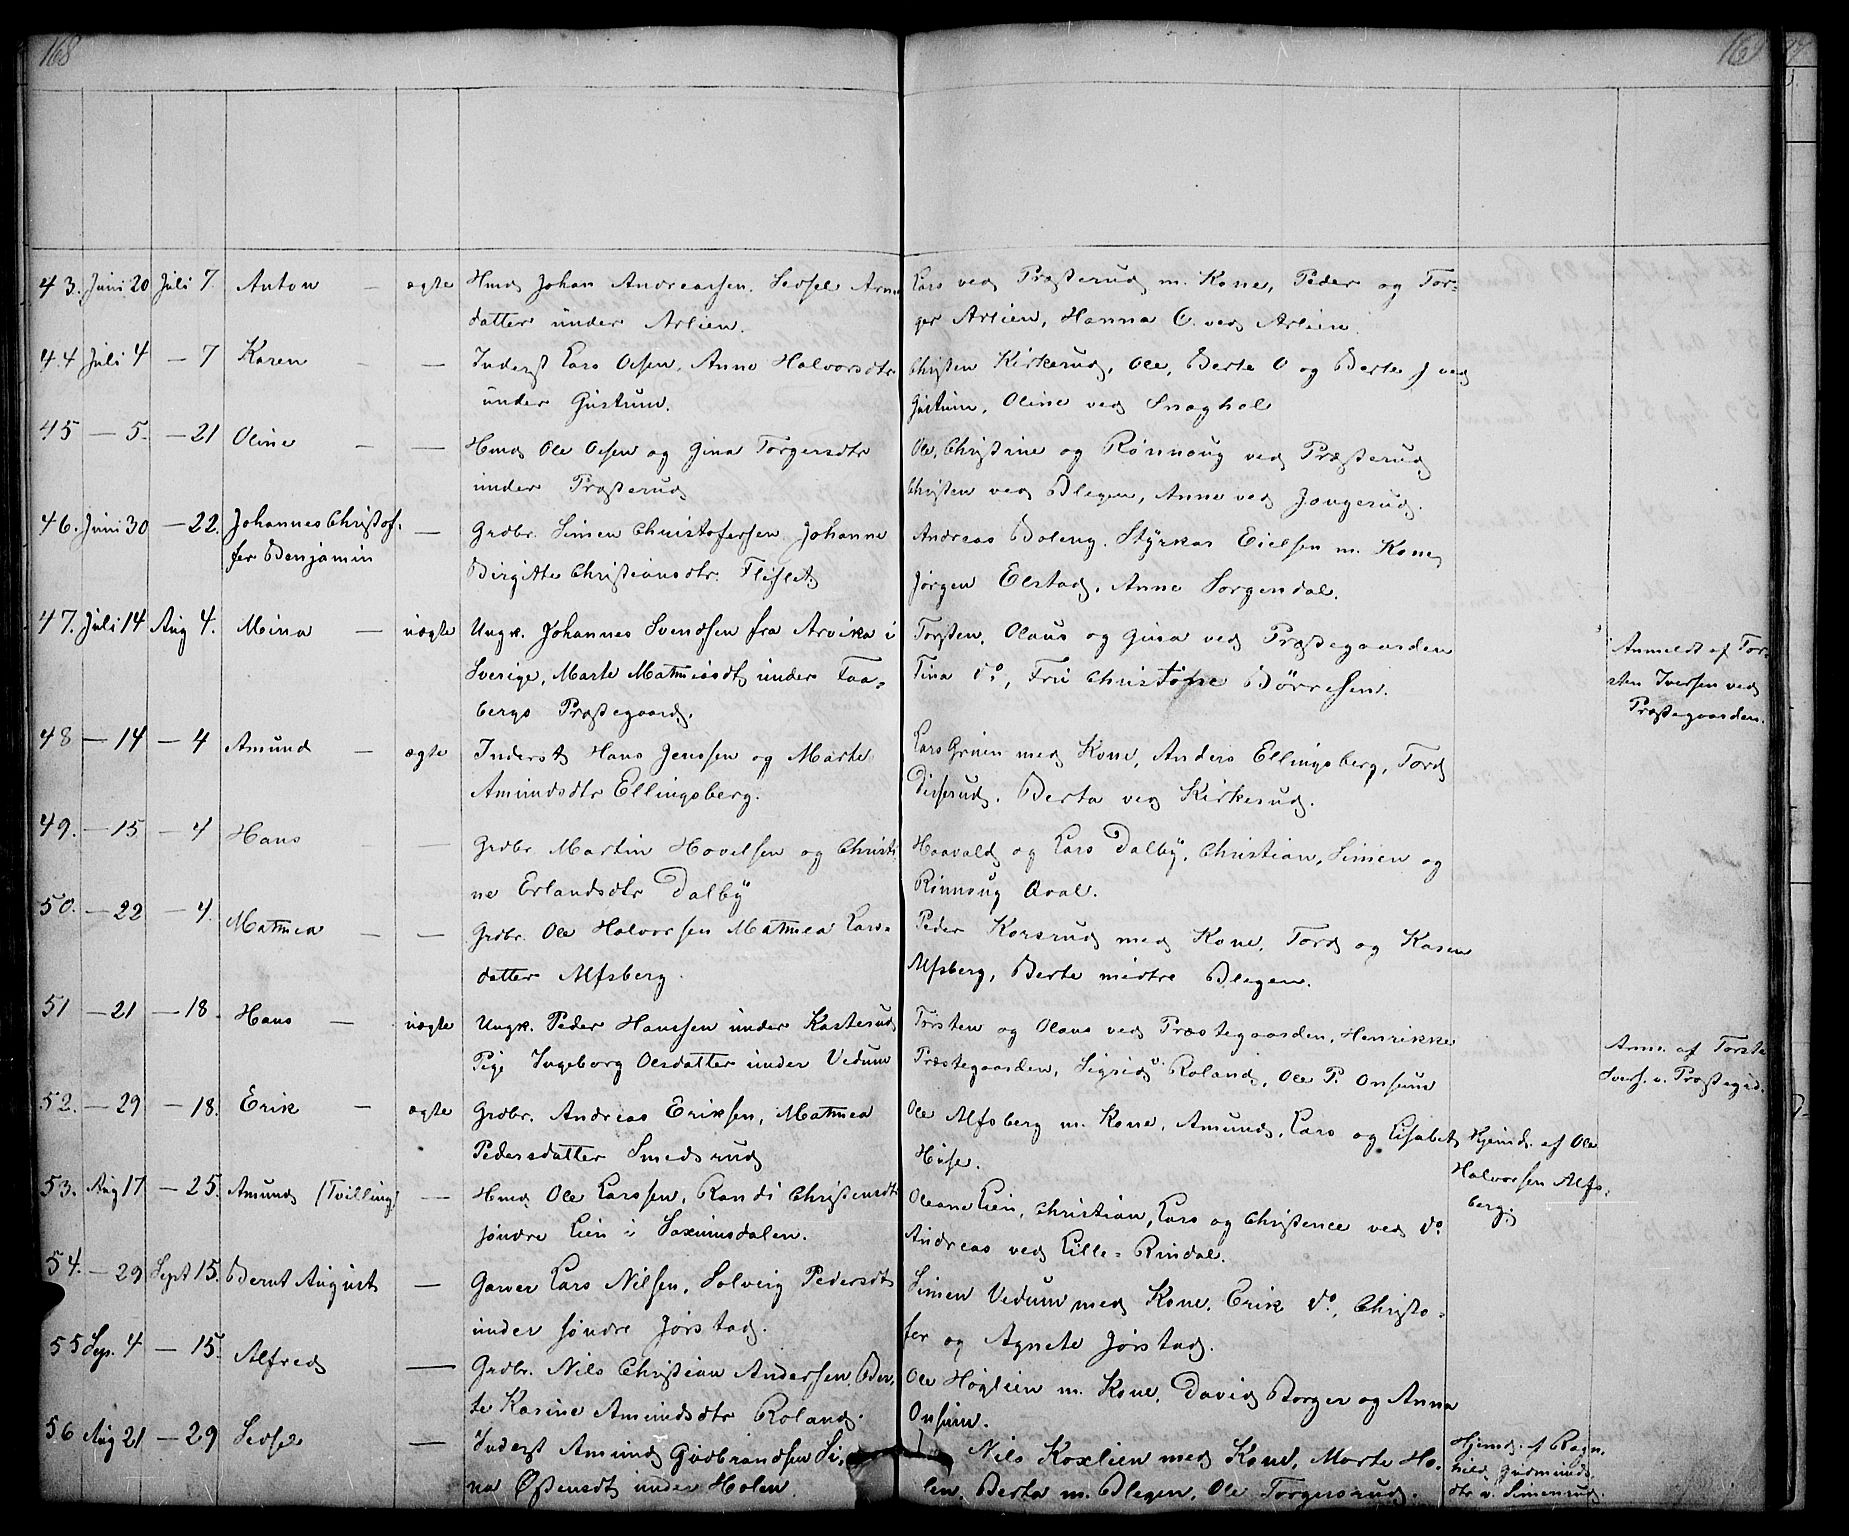 168
169
43. Juni 20 Juli 7. Anton — ægte Hmd Johan Andreassen. Sedsel Arne
datter under Aslien.
Lars ved Præsterud m. Kone, Peder og Tor-
ger Aslien, Hanna O. ved Aslien.
44 Juli 4 — 7 Karen — — Inderst Lars Olsen, Anne Halvorsdtr
under Gustum.
Christen Kirkerud, Ole, Berte O og Berte J ved
Gustum, Oline ved Snaghol
45 — 5. — 21 Oline — — Hmd Ole Olsen og Gina Torgersdtr
under Præsterud
Ole, Christine og Rönnoug ved Præsterud
Christen ved Blegen, Anne ved Jongerud.
46. Juni 30 — 22. Johannes Christof-
fer Benjamin — Grdbr. Simen Christofersen Johanne
Birgitte Christiansdtr. Fliflet
Andreas Boleng. Styrkar Eielsen m. Kone
Jörgen Elstad, Anne Sorgendal.
47. Juli 14 Aug 4. Mina — uægte Ungk. Johannes Svendsen fra Arvika i
Sverige, Marte Mathiasdt under Faa-
bergs Præstegaard.
Torsten, Olaus og Gusa ved Præstegaarden
Tina do, Fru Christofine Börresen.
Anmeldt af Tor-
sten Iversen ved
Præstegaarden.
48 — 14 — 4 Amund — ægte Inderst Hans Jenssen og Marte
Amundsdtr Ellingsberg.
Lars Gruen med Kone, Anders Ellingsberg, Tord
Disserud. Berta ved Kirkerud.
49. — 15 — 4 Hans — — Grdbr. Martin Hovelsen og Christi
ne Erlandsdtr Dalby
Haavald og Lars Dalby, Christian, Simen og
Rönnoug Aval.
50. — 22 — 4. Mathea — — Grdbr. Ole Halvorsen Mathea Lars-
datter Alfsberg.
Peder Korsrud med Kone, Tord og Karen
Alfsberg, Berte midtre Blegen.
51 — 21 — 18. Hans — uægte Ungk. Peder Hanssen under Kasterud
Pige Ingeborg Olsdatter under Vedum
Torsten og Olaus ved Præstegaarden, Henrikke
Præstegaarden, Sigrid Roland, Ole P. Onsum
Anm. af Torste
Ivers. v. Præstegrd.
52. — 29 — 18. Erik — ægte Grdbr. Andreas Eriksen, Mathea
Pedersdatter Smedsrud
Ole Alfsberg m. Kone, Amund, Lars og Lisabet
Huse.
Hjemd. af Ole
Halvorsen Alfs-
berg.
53. Aug 17 — 25. Amund (Tvilling) — Hmd Ole Larssen, Randi Christensdtr
söndre Lien i Saxumsdalen.
Oleane Lien, Christian, Lars og Christence ved do
Andreas ved Lille-Rindal.
54. — 29 Sept 15. Bernt August — Garver Lars Nilsen, Solveig Pedersdt
under söndre Jörstad.
Simen Vedum med Kone, Erik do, Christo-
fer og Agnete Jörstad.
55 Sep. 4 — 15. Alfred — Grdbr. Nils Christian Andersen, Ber-
te Karine Amundsdtr Roland.
Ole Höglien m. Kone, David Borger og Anna
Onsum.
56 Aug 21 — 29 Sedsel — Inderst Amund Gudbrandsen Si-
na Östensdt under Holen.
Nils Koxlien med Kone, Marte Ho-
len, Berta m. Blegen, Ole Torgersrud.
Hjemd. af Ragn-
hild Gudmunds
dtr v. Simenrud.